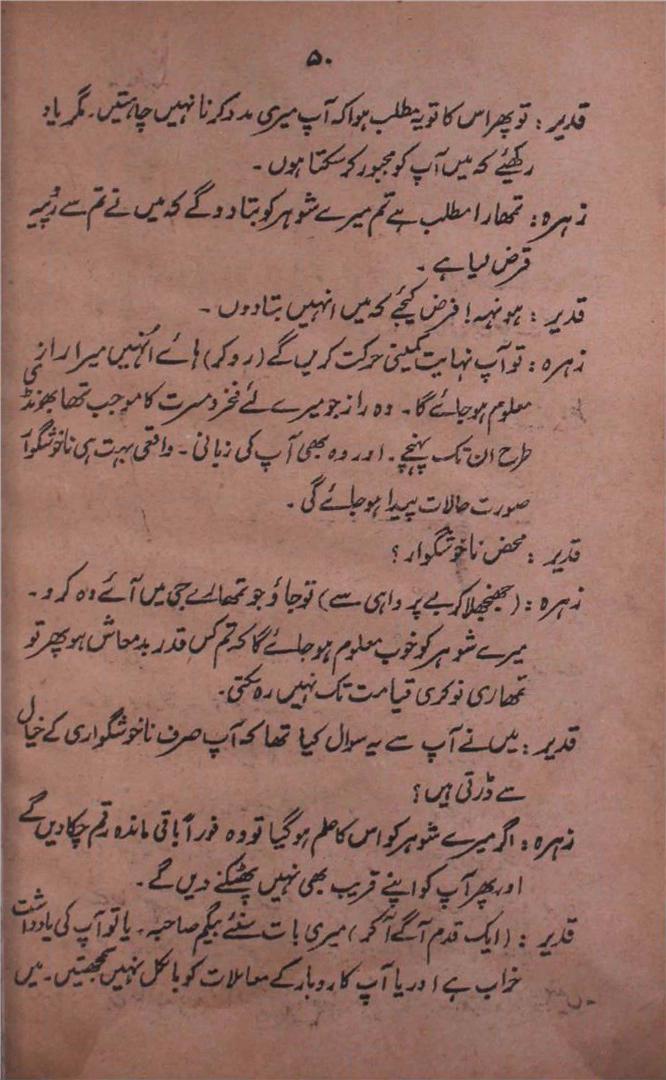 ۵۰
قدیر : تو پھر اس کا تو یہ مطلب ہوا کہ آپ میری مدد کرنا نہیں چاہتیں۔ مگر یاد
رکھیئے کہ میں آپ کو مجبور کر سکتا ہوں۔
زہرہ : تمھارا مطلب ہے تم میرے شوہر کو بتا دو گے کہ میں نے تم سے رُپیہ
قرض لیا ہے۔
قدیر : ہونہہ! فرض کیجئے کہ میں انہیں بتا دوں۔
زہرہ : تو آپ نہایت کمینی حرکت کریں گے (رو کر) ہائے اُنہیں میرا راز
معلوم ہو جائے گا۔ وہ راز جو میرے لئے فخر و مسرت کا موجب تھا بھونڈی
طرح ان تک پہنچے۔ اور وہ بھی آپ کی زبانی۔ واقعی بہت ہی ناخوشگوار
صورت حالات پیدا ہو جائے گی۔
قدیر : محض ناخوشگوار؟
زہرہ : (جھنجھلا کر بے پرواہی سے) تو جاؤ جو تمھارے جی میں آئے وہ کرو۔
میرے شوہر کو خوب معلوم ہو جائے گا کہ تم کس قدر بدمعاش ہو پھر تو
تمھاری نوکری قیامت تک نہیں رہ سکتی۔
قدیر : میں نے آپ سے یہ سوال کیا تھا کہ آپ صرف ناخوشگواری کے خیال
سے ڈرتی ہیں؟
زہرہ : اگر میرے شوہر کو اس کا علم ہو گیا تو وہ فوراً باقی ماندہ رقم چکا دیں گے
اور پھر آپ کو اپنے قریب بھی نہیں پھٹکنے دیں گے۔
قدیر : (ایک قدم آگے آ کر) میری بات سنئے بیگم صاحبہ۔ یا تو آپ کی یادداشت
خراب ہے اور یا آپ کاروبار کے معاملات کو بالکل نہیں سمجھتیں۔ میں